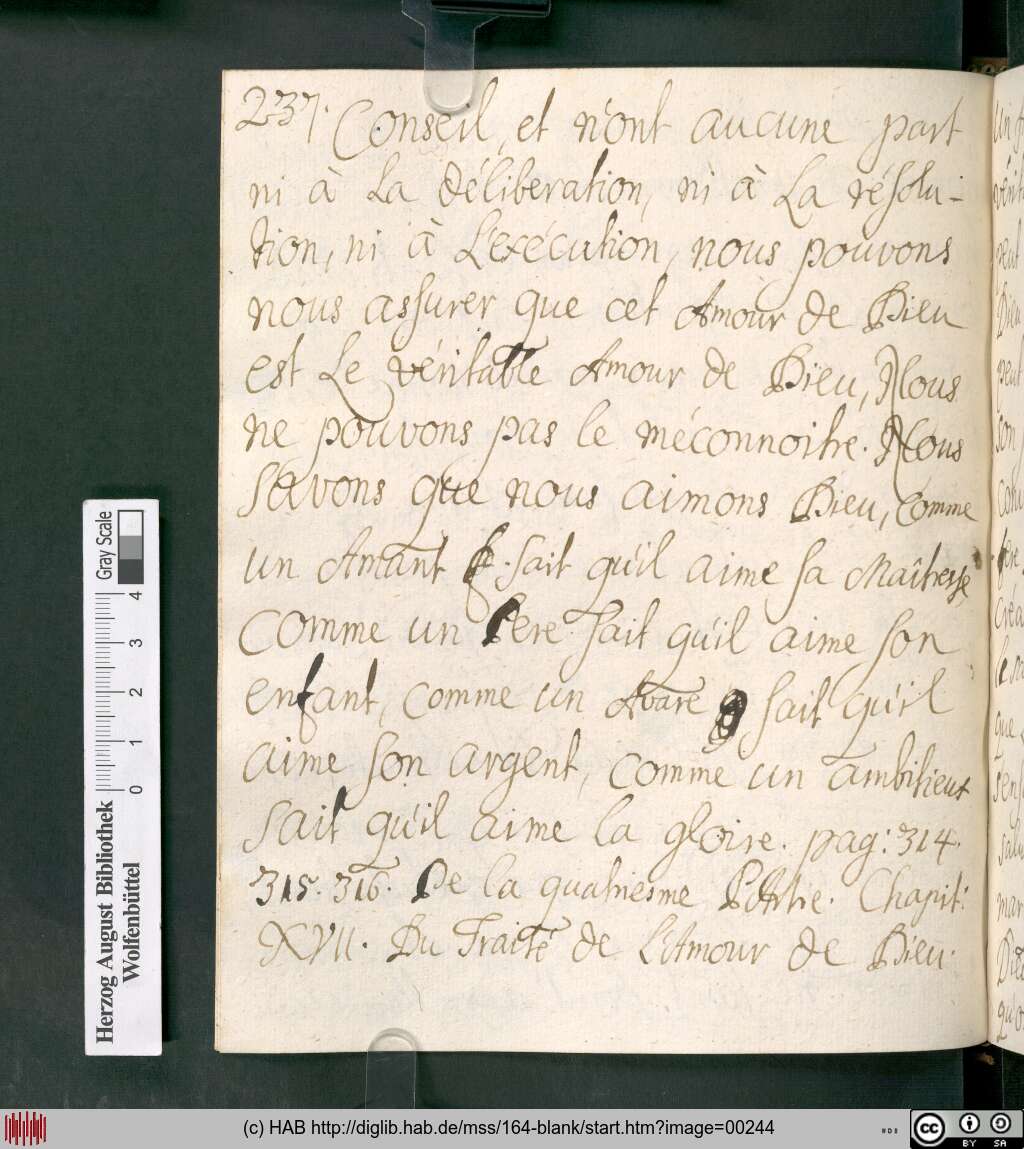 237. Conseil, et n'ont aucune part
ni à La déliberation, ni à La résolu-
tion, ni à L'exécution, nous pouvons
nous assurer que cet Amour de Dieu
est Le véritable Amour de Dieu, Nous
ne pouvons pas le méconnoitre. Nous
Savons que nous aimons Dieu, comme
un Amant sait qu'il aime sa Maîtresse,
Comme un Pere sait qu'il aime son
enfant, comme un Avare sait qu'il
aime son argent, comme un ambitieux
sait qu'il aime la gloire. pag: 314.
315. 316. De la quatriesme Partie. Chapit:
XVII. Du Traité de L'Amour de Dieu.
Gray Scale
4
3
2
1
0
Herzog August Bibliothek
Wolfenbüttel
(c) HAB http://diglib.hab.de/mss/164-blank/start.htm?image=00244
cc BY SA